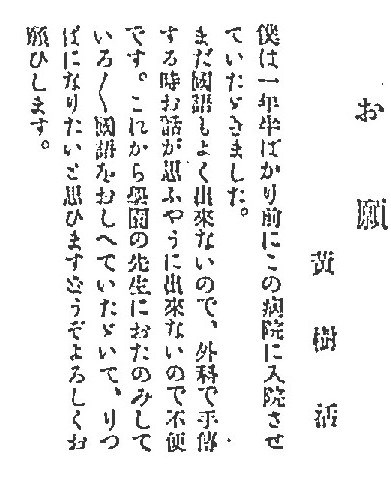 お願
黄樹活
僕は一年半ばかり前にこの病院に入院させ
ていたゞきました。
まだ國語もよく出來ないので、外科で手傳
する時お話が思ふやうに出來ないので不便
です。これから學園の先生におたのみして
いろ〱國語をおしへていたゞいて、りつ
ぱになりたいと思ひますどうぞよろしくお
願ひします。